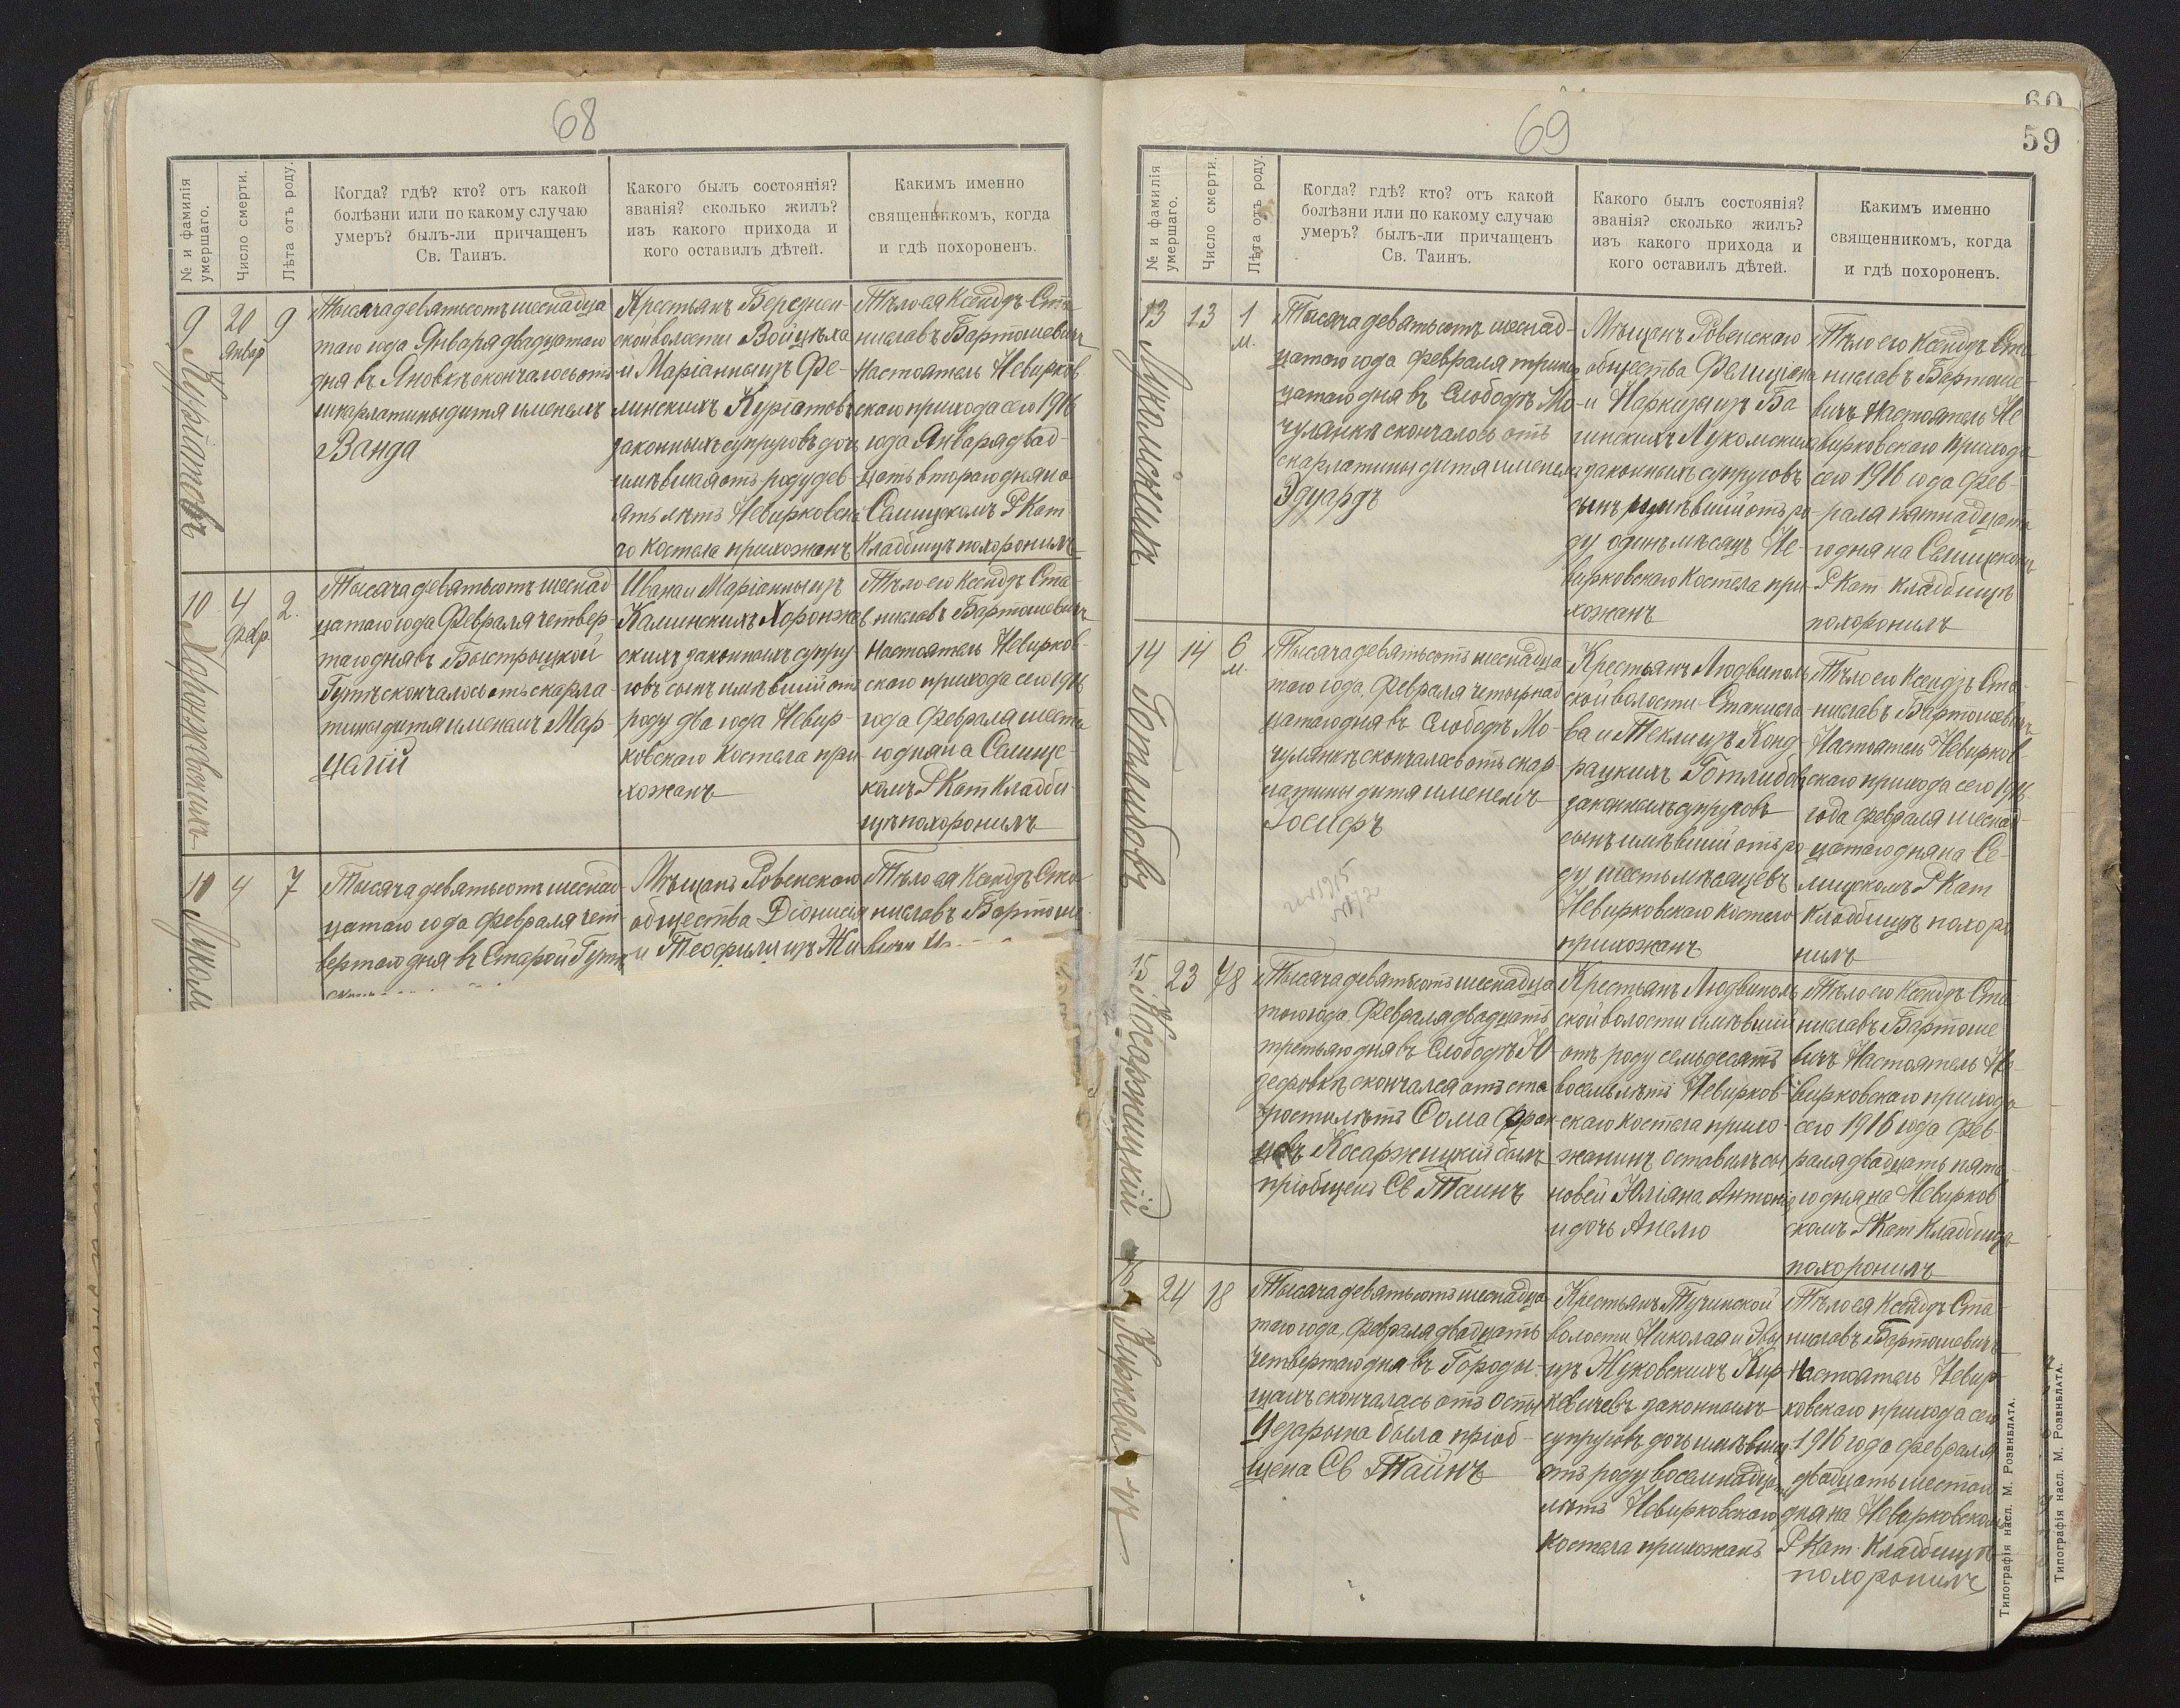 68
№ и фамилія умершаго.
Число смерти.
Лѣта отъ роду.
Когда? гдѣ? кто? отъ какой
болѣзни или по какому случаю
умеръ? былъ-ли причащенъ
Св. Таинъ.
Какого былъ состоянія?
званія? сколько жилъ?
изъ какого прихода и
кого оставилъ дѣтей.
Какимъ именно
священникомъ, когда
и гдѣ похороненъ.
9
Куріатовъ
20
Январ
9
Тысяча девятьсотъ шеснадца
таго года Января двадцатаго
дня въ Яновкѣ скончалось отъ
шкарлатины дитя именемъ
Ванда
Крестьянъ Бережен-
ской волости Войцѣха
и Маріанны изъ Фе-
линскихъ Куріатовъ
законныхъ супруговъ дочь
имѣвшая отъ роду дев-
ять лѣтъ Невирковска
го костела прихожанъ
Тѣло ея Ксендзъ Ста
ниславъ Бартошевичъ
Настоятель Невирков
скаго прихода сего 1916
года Января двад-
цать втораго дня на
Селищскомъ Р Кат
Кладбищѣ похоронилъ
10
Харонжевскихъ
4
Февр.
2.
Тысяча девятьсотъ шеснад
цатаго года Февраля четвер-
таго дня въ Быстрицкой
Гутѣ скончалось отъ скарла-
тины дитя именемъ Мар-
цалій
Ивана и Маріанны изъ
Каминскихъ Харонжев
скихъ законныхъ супру
говъ сынъ имѣвшій отъ
роду два года Невир-
ковскаго Костела при
хожанъ
Тѣло его Ксендзъ Ста-
ниславъ Бартошевичъ
Настоятель Невирков-
скаго прихода сего 1916
года Февраля шеста
го дня на Селище-
комъ Р Кат Кладби-
щѣ похоронилъ
11
Луком
4
7
Тысяча девятьсотъ шеснад-
цатаго года Февраля чет-
вертаго дня въ Старой Гутѣ
Мѣщанъ Ровенскаго
общества Діонисія
и Теофили изъ Жи
Тѣло ея Ксендзъ Ста
ниславъ Бартоше
вичъ
69
60
59
№ и фамилія умершаго.
Число смерти.
Лѣта отъ роду.
Когда? гдѣ? кто? отъ какой
болѣзни или по какому случаю
умеръ? былъ-ли причащенъ
Св. Таинъ.
Какого былъ состоянія?
званія? сколько жилъ?
изъ какого прихода и
кого оставилъ дѣтей.
Какимъ именно
священникомъ, когда
и гдѣ похороненъ.
13
Лукомскихъ
13
1
м.
Тысяча девятьсотъ шеснад-
цатаго года Февраля тринад
цатаго дня въ Слободѣ Мо-
чулянкѣ скончалось отъ
скарлатины дитя именемъ
Эдуардъ
Мѣщанъ Ровенскаго
общества Фелиціана
и Наркизы изъ Ба
гинскихъ Лукомскихъ
законныхъ супруговъ
сынъ имѣвшій отъ ро-
ду одинъ мѣсяцъ Не-
вирковскаго Костела при
хожанъ
Тѣло его Ксендзъ Ста
ниславъ Бартоше-
вичъ Настоятель Не
вирковскаго Прихода
сего 1916 года Фев-
раля пятнадцата
го дня на Селищском
Р Кат Кладбищѣ
похоронилъ
14
Готлибовъ
14
6
м.
Тысяча девятьсотъ шеснадца
таго года Февраля четырнад
цатаго дня въ Слободѣ Мо-
чулянкѣ скончалось отъ скар-
латины дитя именемъ
Іосифъ
Крестьянъ Людвиполь
ской волости Станисла
ва и Текли изъ Конд-
рацкихъ Готлибовъ
законныхъ супруговъ
сынъ имѣвшій отъ ро-
ду шесть мѣсяцевъ
Невирковскаго Костела
прихожанъ
Тѣло его Ксендзъ Ста-
ниславъ Бартошевичъ
Настоятель Невирков
скаго прихода сего 1916
года Февраля шеснад-
цатаго дня на Се-
лищскомъ Р Кат
Кладбищѣ похоро
нилъ
15
Косаржицкій
23
78
Тысяча девятьсотъ шеснадца
того года Февраля двадцать
третьяго дня въ Слободѣ Ю-
зефовкѣ скончался отъ ста
рости лѣтъ Ѳома Фран-
цовъ Косаржицкій былъ
пріобщенъ Св Таинъ
Крестьянъ Людвиполь
ской волости имѣвшій
отъ роду семьдесятъ
восемь лѣтъ Невирков-
скаго костела прихо-
жанинъ оставилъ сы
новей Юліяна Антона
и дочь Анелю
Тѣло его Ксендзъ Ста
ниславъ Бартоше
вичъ Настоятель Не-
вирковскаго прихода
сего 1916 года Фев-
раля двадцать пята-
го дня на Невирков
скомъ Р Кат Кладбищѣ
похоронилъ
Киркевичъ
24
18
Тысяча девятьсотъ шеснадца
таго года, Февраля двадцать
четвертаго дня въ Городи-
щахъ скончалась отъ Оспы
Цезарына была пріоб-
щена Св Таинъ
Крестьянъ Тучинской
волости Николая и Эвы
изъ Жуковскихъ Кир-
кевичевъ законныхъ
супруговъ дочь имѣвшая
отъ роду восемнадцать
лѣтъ Невирковскаго
Костела прихожанъ
Тѣло ея Ксендзъ Ста-
ниславъ Бартошевичъ
Настоятель Невир-
ковскаго прихода сего
1916 года Февраля
двадцать шестаго
дня на Невирковском
Р Кат. Кладбищѣ
похоронилъ
Типографія насл. М. Розенблата.
Типографія насл. М. Розенблата.